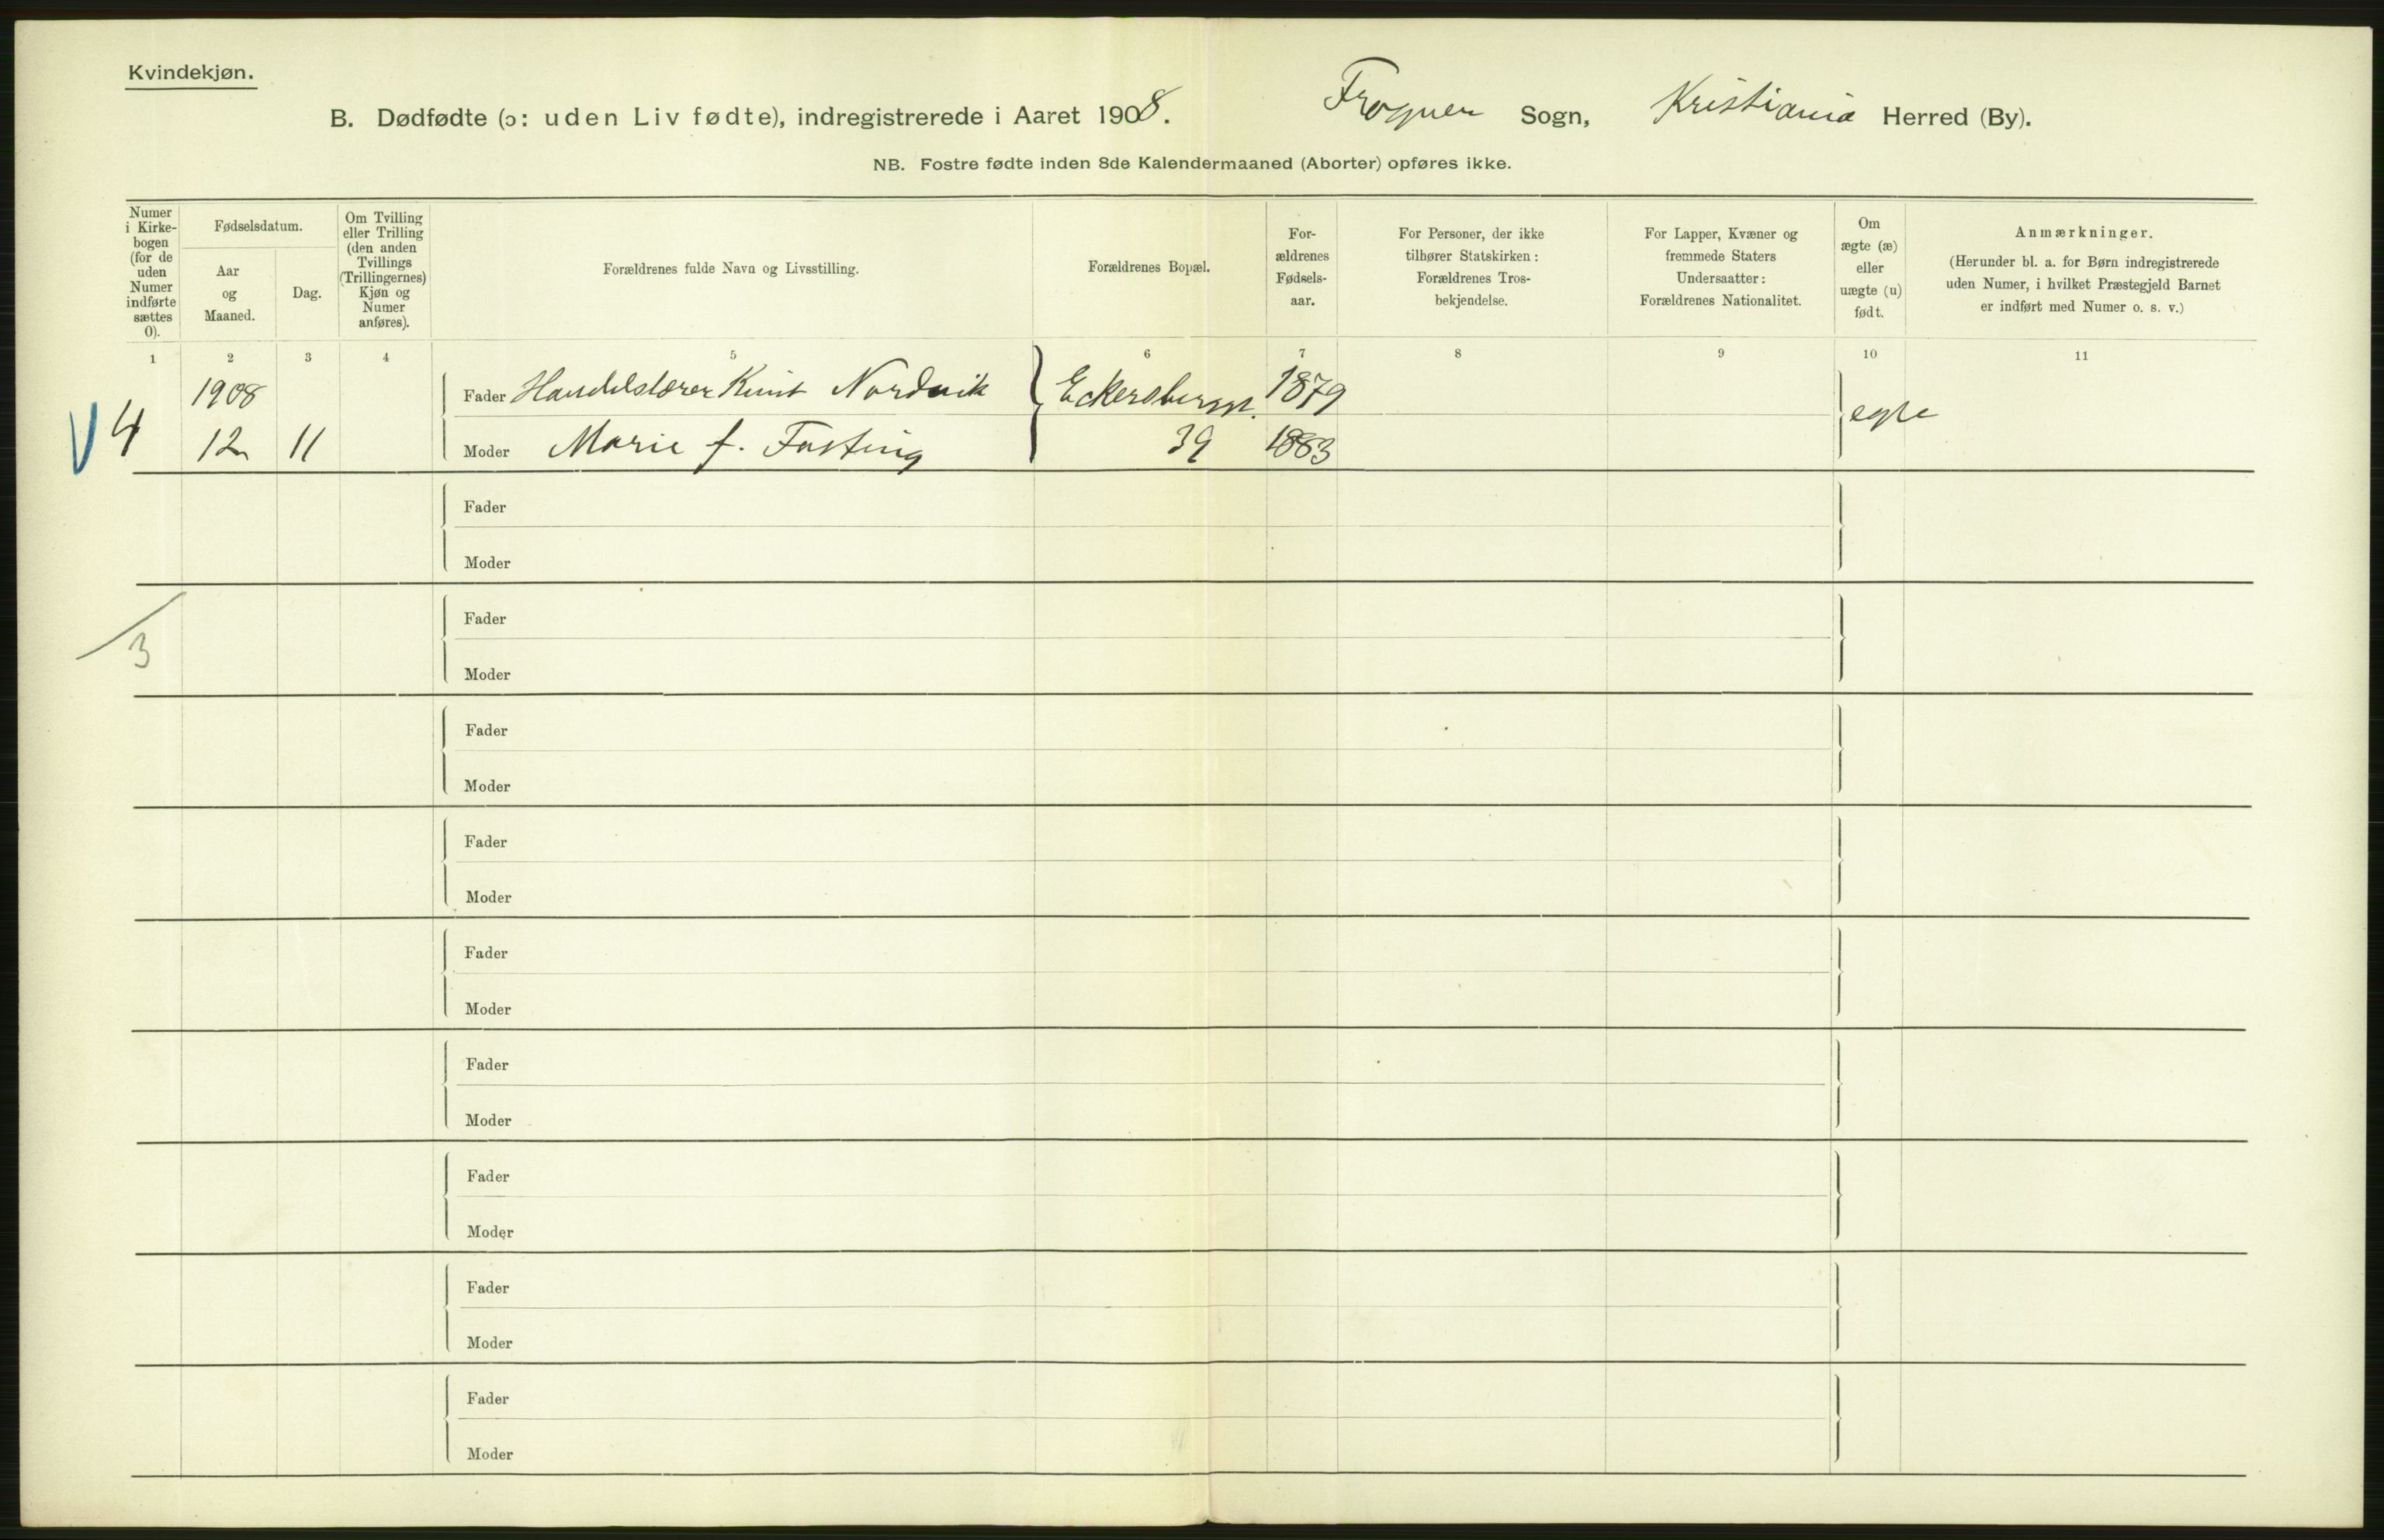 Kvindekjøn.
B. Dødfødte (ɔ: uden Liv fødte), indregistrerede i Aaret 1908. Frogner Sogn, Kristiania Herred (By).
NB. Fostre fødte inden 8de Kalendermaaned (Aborter) opføres ikke.
Numer
i Kirke-
bogen
(for de
uden
Numer
indførte
sættes
0).
Fødselsdatum.
Aar
og
Maaned.
Dag.
Om Tvilling
eller Trilling
(den anden
Tvillings
(Trillingernes)
Kjøn og
Numer
anføres).
Forældrenes fulde Navn og Livsstilling.
Forældrenes Bopæl.
For-
ældrenes
Fødsels-
aar.
For Personer, der ikke
tilhører Statskirken:
Forældrenes Tros-
bekjendelse.
For Lapper, Kvæner og
fremmede Staters
Undersaatter:
Forældrenes Nationalitet.
Om
ægte (æ)
eller
uægte (u)
født.
Anmærkninger.
(Herunder bl. a. for Børn indregistrerede
uden Numer, i hvilket Præstegjeld Barnet
er indført med Numer o. s. v.)
1 2 3 4 5 6 7 8 9 10 11
1908 Fader Handelslærer Knut Nordvik Eckersbergsgt. 1879
4 12 11 Moder Marie f. Fasting 39 1883 egte
Fader
Moder
Fader
3
Moder
Fader
Moder
Fader
Moder
Fader
Moder
Fader
Moder
Fader
Moder
Fader
Moder
Fader
Moder